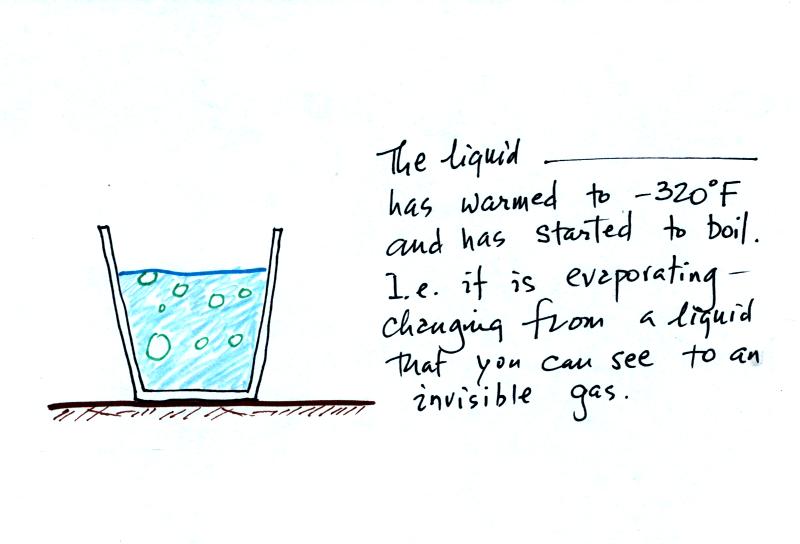 The liquid __________
has warmed to -320°F
and has started to boil.
I.e. it is evaporating -
changing from a liquid
that you can see to an
invisible gas.